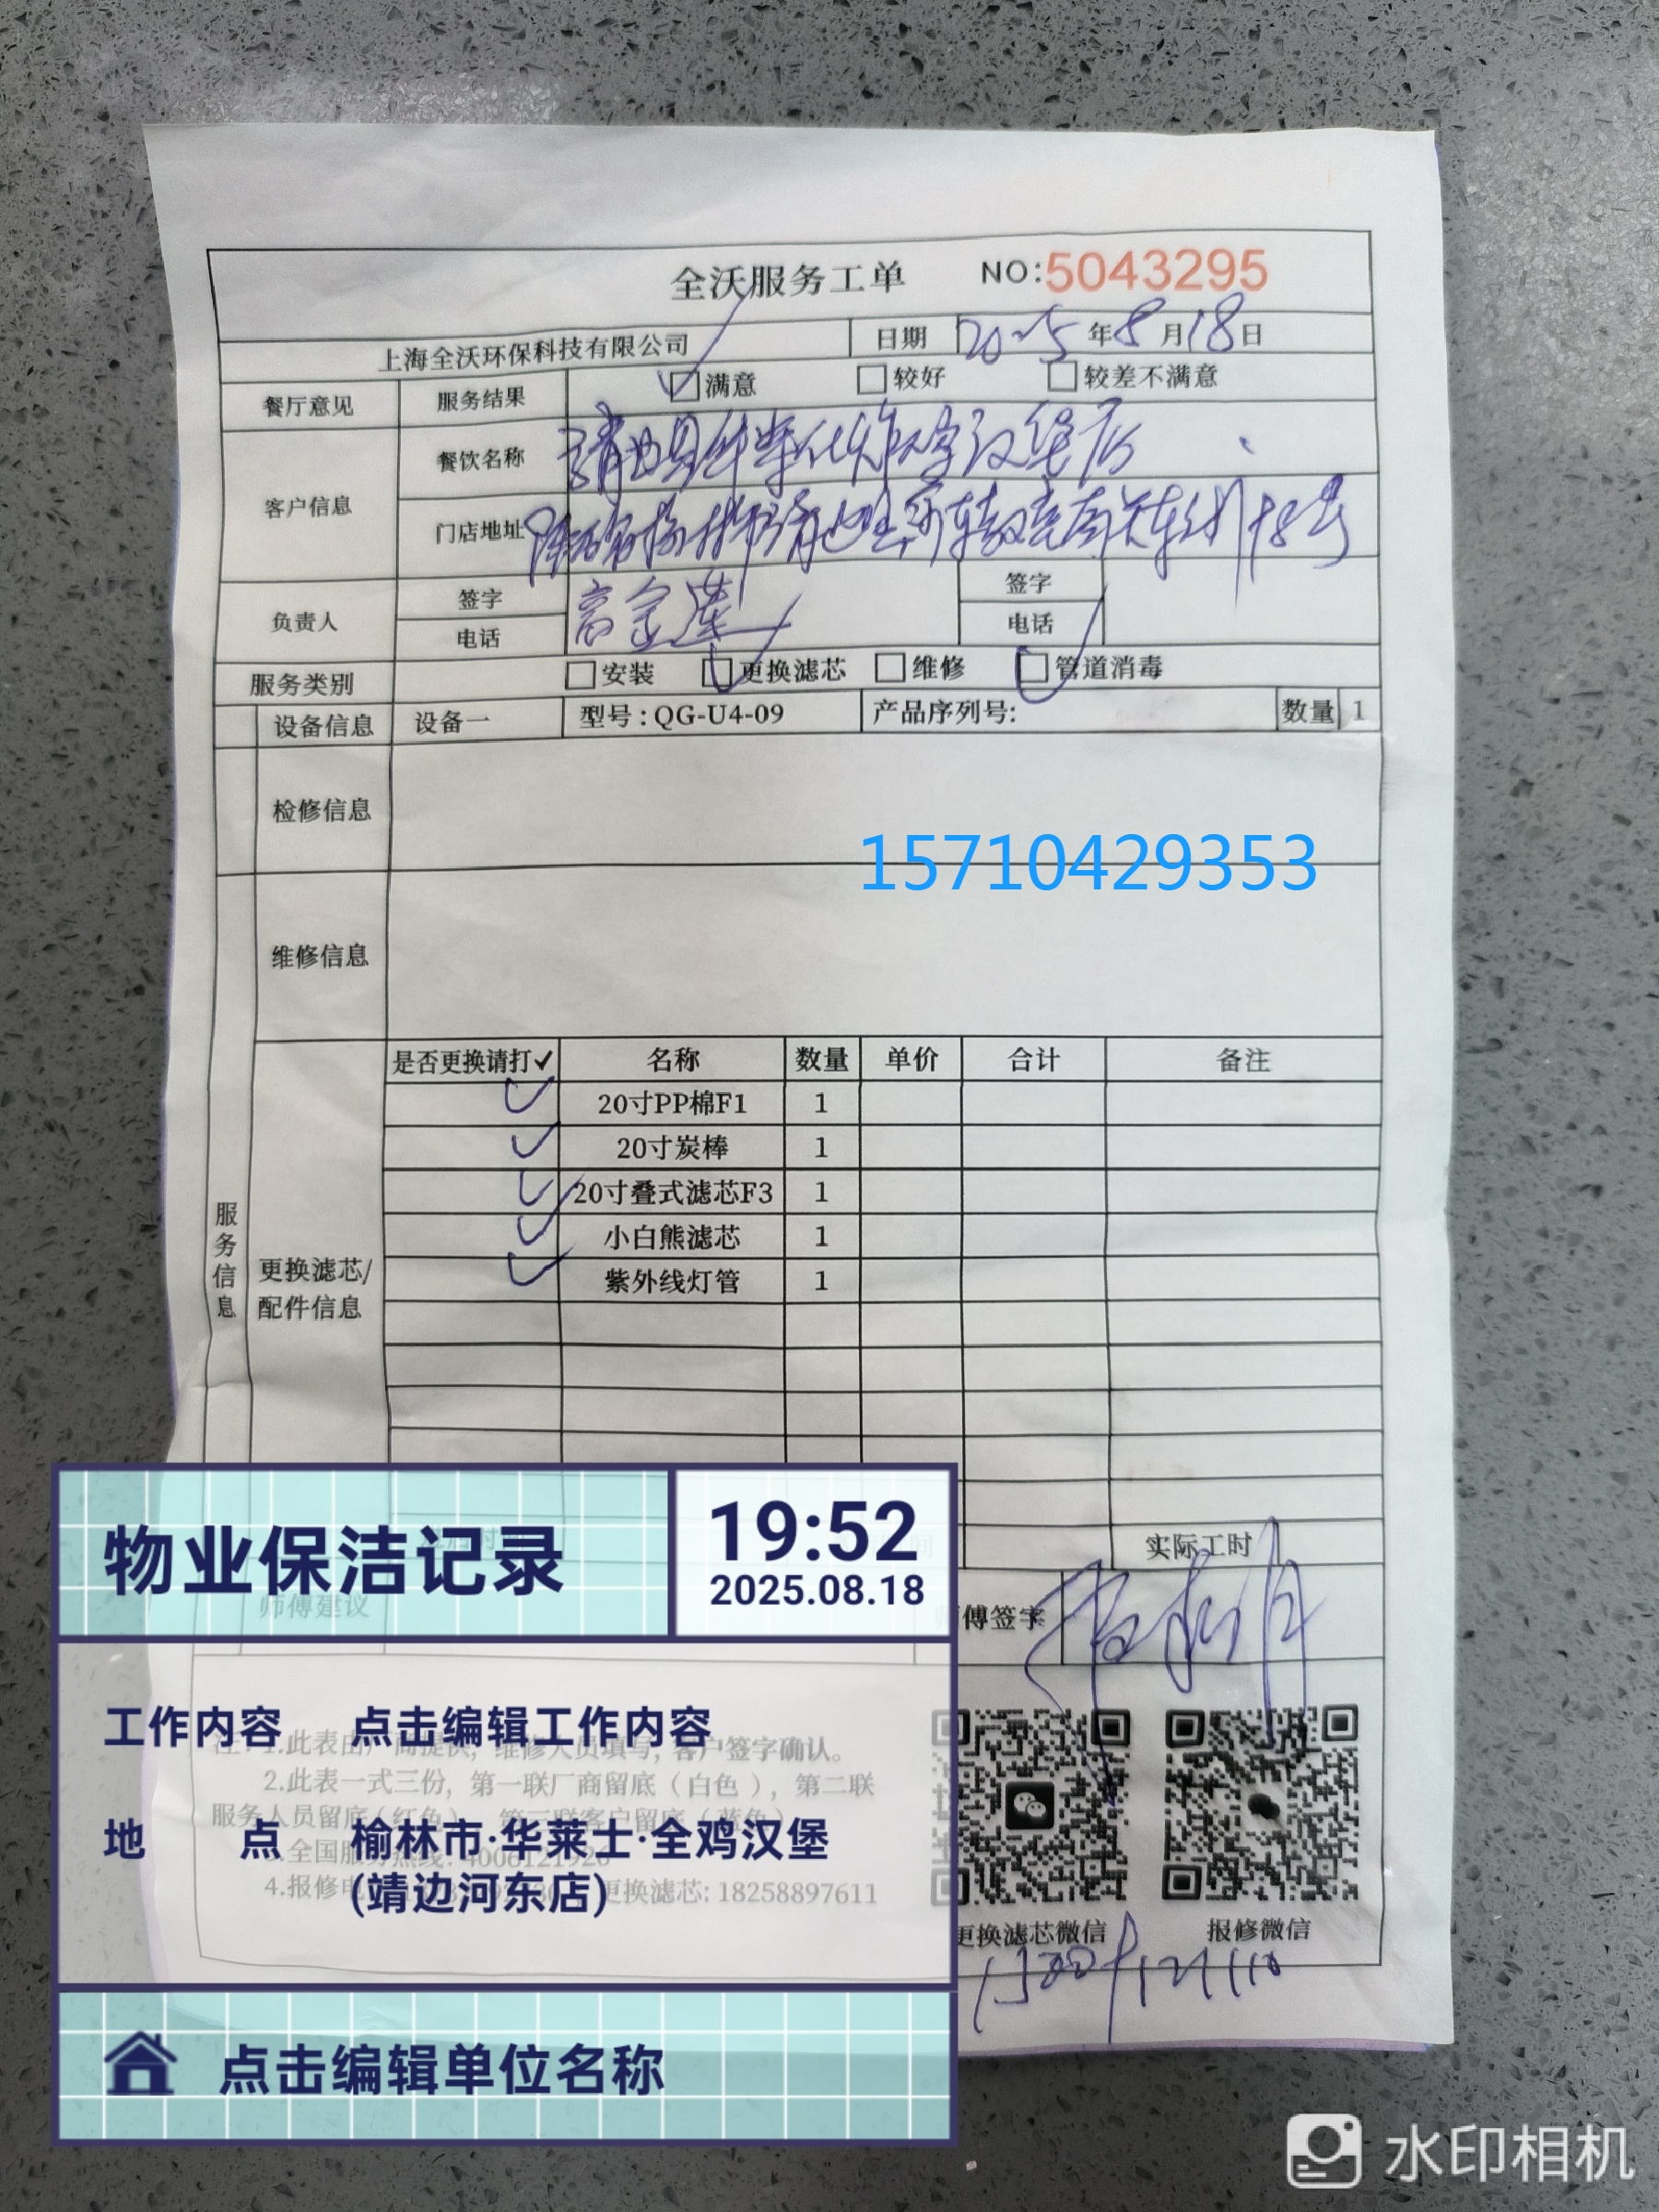 全沃服务工单 NO:5043295
上海全沃环保科技有限公司 日期 2025年8月18日
餐厅意见 服务结果 满意 较好 较差不满意
客户信息 餐饮名称
门店地址
负责人 签字 高金莲 签字
电话 电话
服务类别 安装 更换滤芯 维修 管道消毒
设备信息 设备一 型号:QG-U4-09 产品序列号: 数量 1
检修信息
15710429353
维修信息
服务信息
更换滤芯/配件信息
是否更换请打✓ 名称 数量 单价 合计 备注
✓ 20寸PP棉F1 1
✓ 20寸炭棒 1
✓ 20寸叠式滤芯F3 1
✓ 小白熊滤芯 1
✓ 紫外线灯管 1
实际工时
师傅建议 傅签字
注:1.此表由厂商提供,维修人员填写,客户签字确认。
2.此表一式三份,第一联厂商留底(白色),第二联
服务人员留底(红色),第三联客户留底(蓝色)
3.全国服务热线:4006121920
4.报修电 更换滤芯:18258897611
更换滤芯微信 报修微信
物业保洁记录
19:52
2025.08.18
工作内容 点击编辑工作内容
地点 榆林市·华莱士·全鸡汉堡
(靖边河东店)
点击编辑单位名称
水印相机